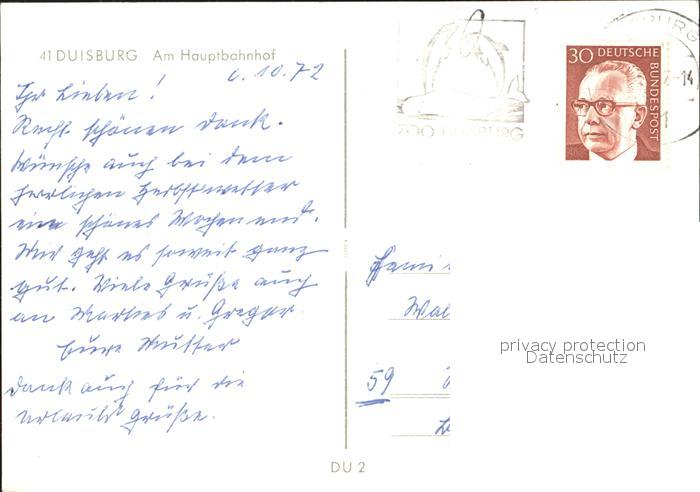 41 DUISBURG Am Hauptbahnhof
6.10.72
Ihr Lieben!
Recht schönen Dank.
Wünsche auch bei dem
herrlichen Herbstwetter
ein schönes Wochenend.
Mir geht es soweit ganz
gut. Viele Grüße auch
an Markus u. Gregor
Eure Mutter
Dank auch für die
Urlaubsgrüße.
ZOO DUISBURG
30 DEUTSCHE BUNDESPOST
-14
Fami
Wal
59
privacy protection
Datenschutz
DU 2